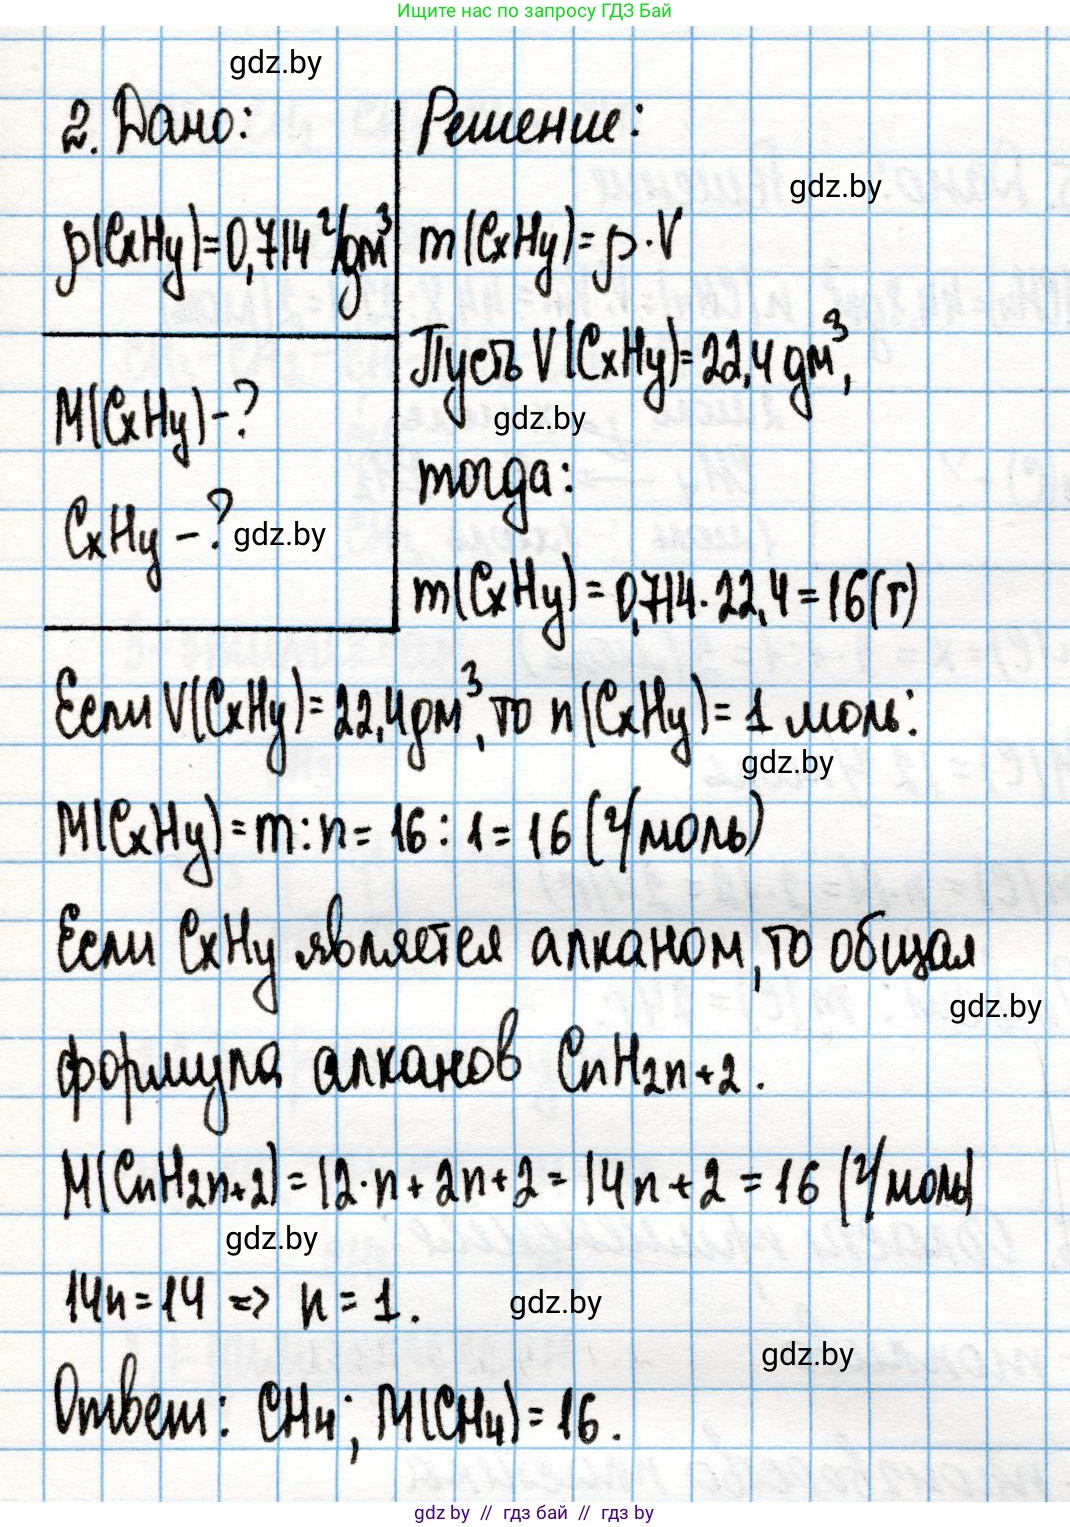 Ищите нас по запросу ГДЗ Бай
gdz.by
2. Дано:
ρ(CxHy)=0,714 г/дм³
M(CxHy)-?
CxHy -?
gdz.by
Решение:
gdz.by
m(CxHy)=ρ·V
Пусть V(CxHy)=22,4 дм³,
gdz.by
тогда:
m(CxHy)=0,714·22,4=16(г)
Если V(CxHy)=22,4дм³, то n(CxHy)=1 моль:
gdz.by
M(CxHy)=m:n=16:1=16 (г/моль)
Если CxHy является алканом, то общая
gdz.by
формула алканов CnH2n+2.
M(CnH2n+2)=12·n+2n+2=14n+2=16 (г/моль)
gdz.by
14n=14 => n=1.
gdz.by
gdz.by
Ответ: CH4; M(CH4)=16.
gdz by // гдз бай // gdz by